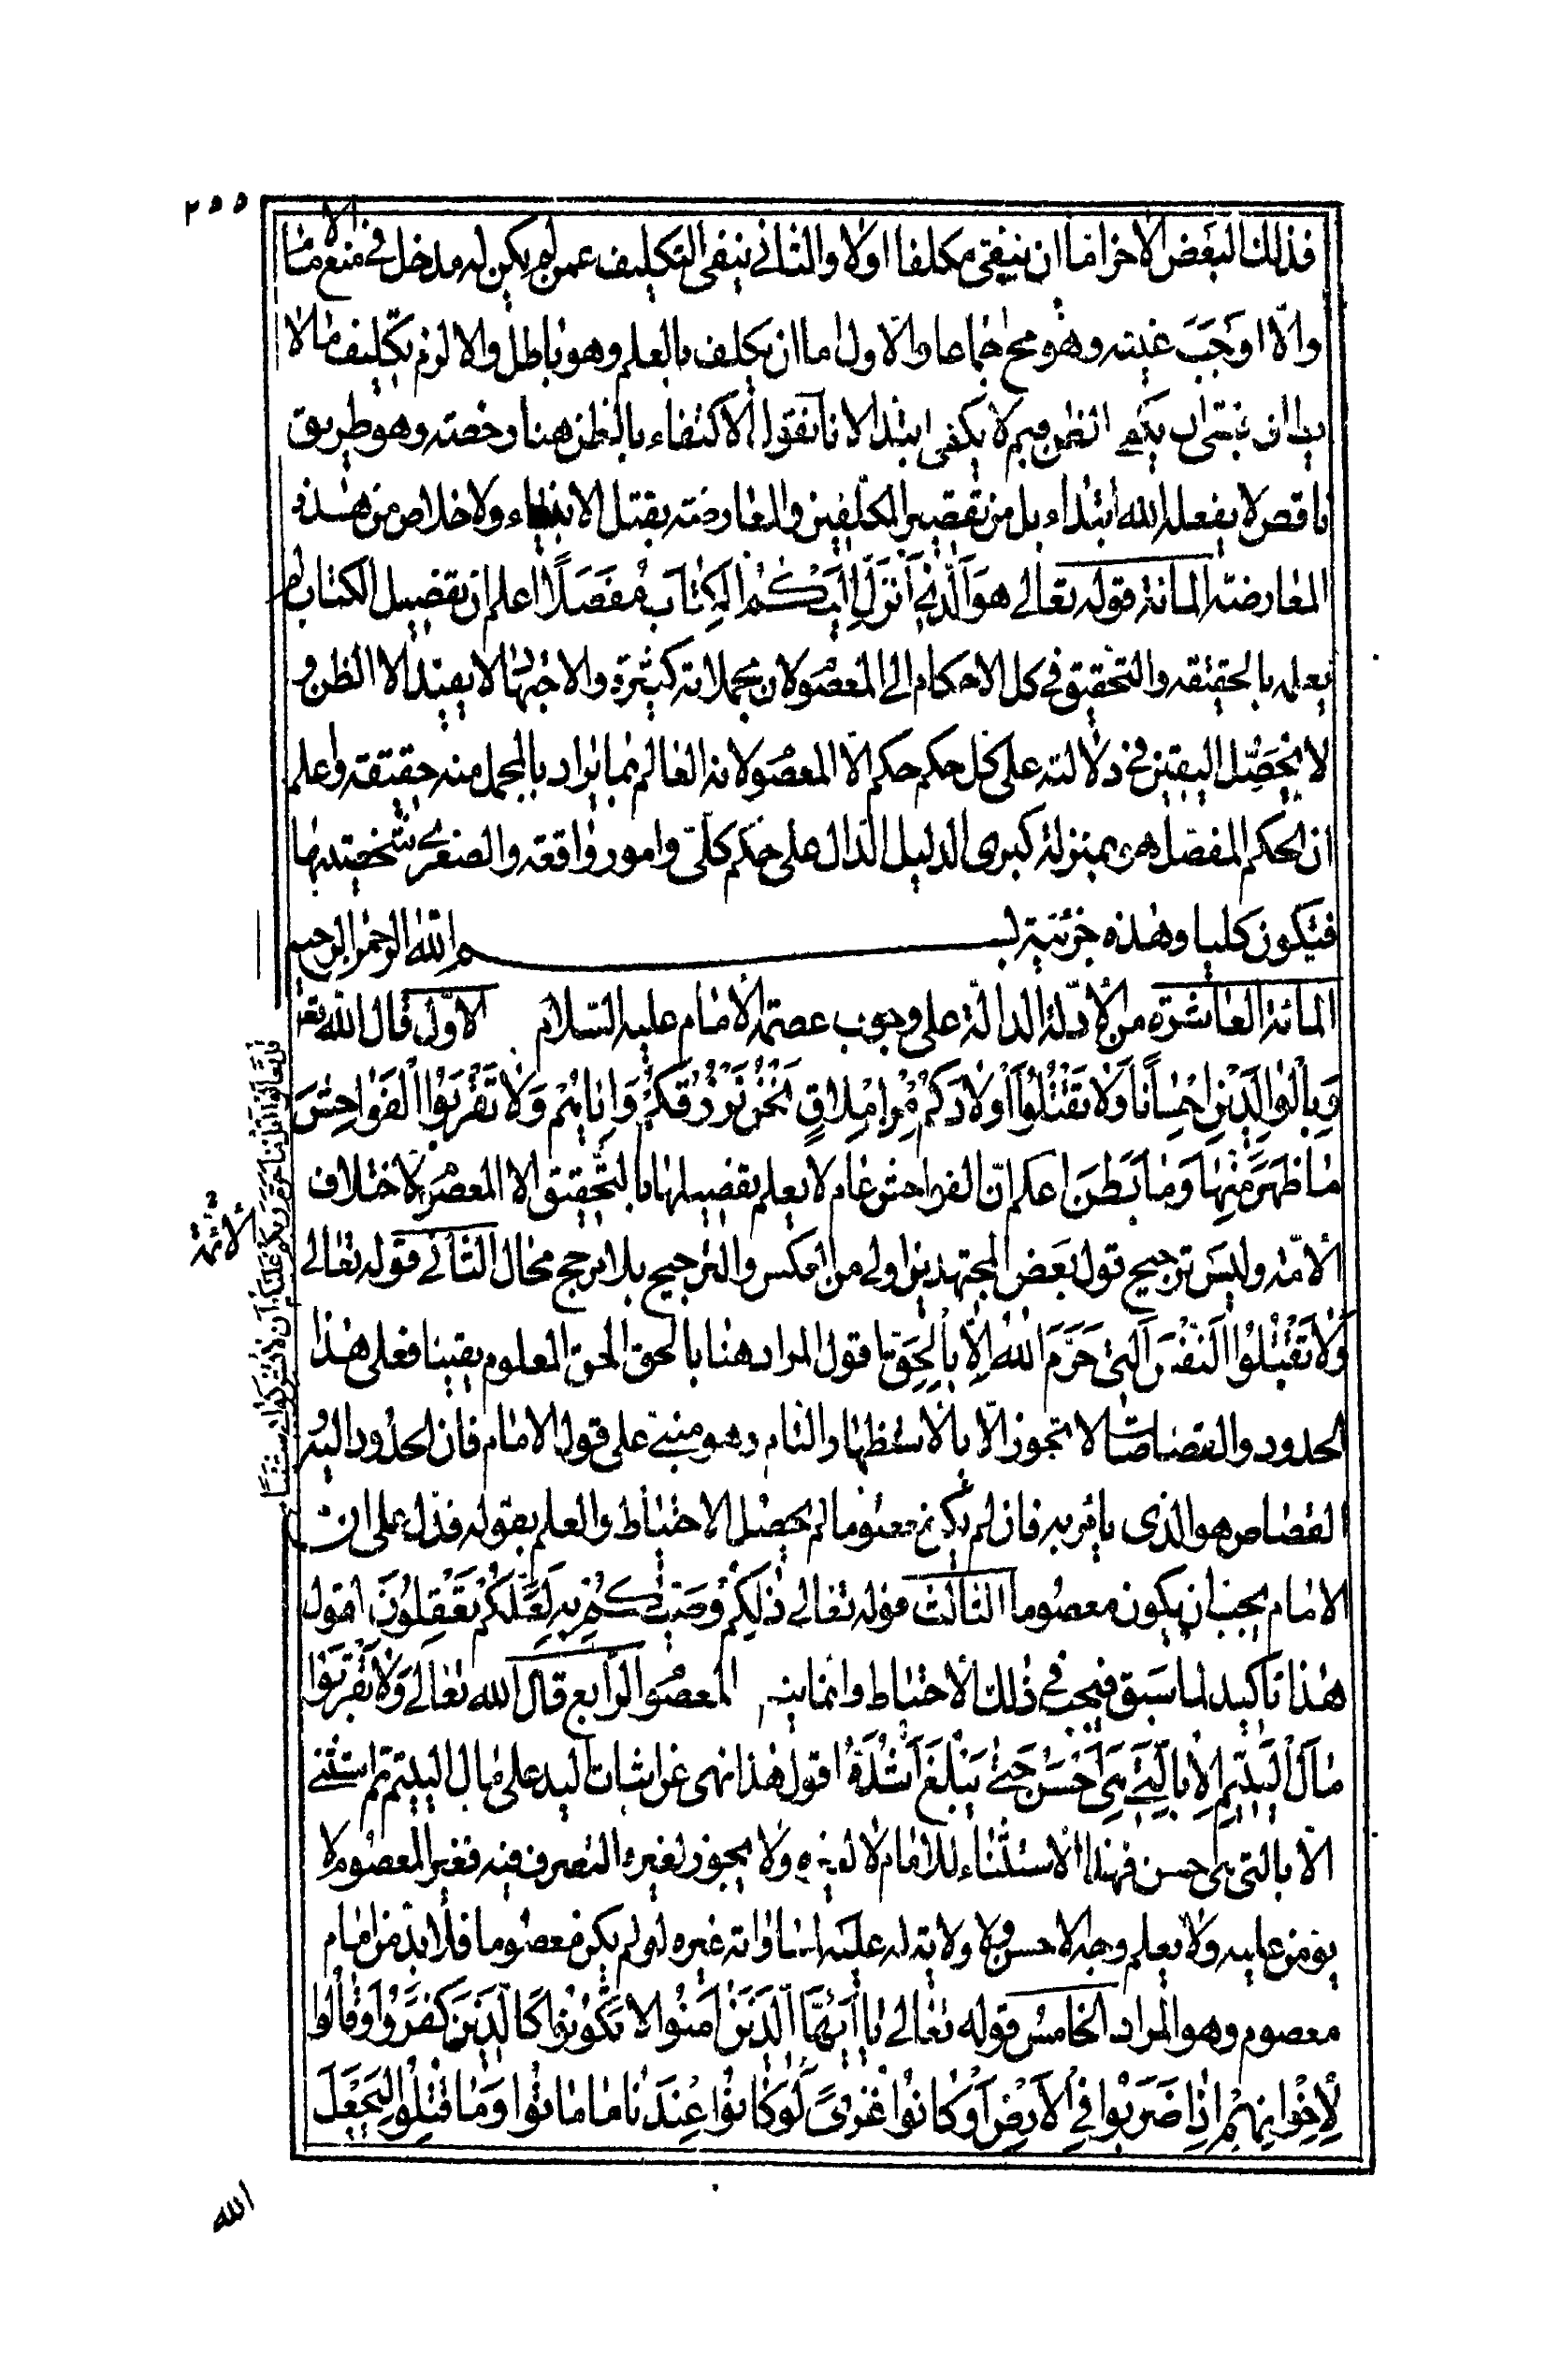 ٢٥٥
فذلك البعض الآخر اما ان يبقى مكلفا اولا والثاني ينفي التكليف عمن لم يكن له مدخل في منع الامام
والا اوجب غيبته وهو مح اجماعا والاول اما ان يكلف بالعلم وهو باطل والا لزم تكليف ما لا
يطاق يكفي الظن فيم لا يكفي ابتدا لانا نقول الاكتفاء بالظن هنا رخصته وهو طريق
ناقص لا يفعله الله ابتداء بل من تقصير المكلفين والمعارضته بقتل الانبياء ولا خلاص من هذه
المعارضته المائة قوله تعالى هو الذي أنزل إليكم الكتاب مفصلا اعلم ان تفصيل الكتاب لم
يعلم بالحقيقه والتحقيق في كل الاحكام الا المعصوم لان مجملاته كثيرة والاجتهاد لا يفيد الا الظن و
لا يحصل اليقين في دلالته على كل حكم حكم الا المعصوم لانه العالم بما يراد بالمجمل منه حقيقته واعلم
ان الحكم المفصل هي بمنزلة كبرى الدليل الدال على حكم كلي وامور واقعه والصغرى شخصيته
فيكون كليا وهذه جزئية بسم الله الرحمن الرحيم
المائة العاشرة من الأدلة الدالة على وجوب عصمة الامام عليه السلام الاول قال الله تعالى
قل تعالوا اتل ما حرم ربكم عليكم أن لا تشركوا به شيئا
وبالوالدين إحسانا ولا تقتلوا أولادكم من إملاق نحن نرزقكم وإياهم ولا تقربوا الفواحش
ما ظهر منها وما بطن اعلم ان الفواحش عام لا يعلم تفصيلها بالتحقيق الا المعصوم لاختلاف
الأئمة
الامة وليس ترجيح قول بعض المجتهدين اولى من العكس والترجيح بلا مرجح محال الثاني قوله تعالى
ولا تقتلوا النفس التي حرم الله إلا بالحق اقول المراد هنا بالحق الحق المعلوم يقينا فعلى هذا
الحدود والقصاصات لا تجوز الا بالاستظهار التام وهو مبني على قول الامام فان الحدود اليه
القصاص هو الذي يأمر به فان لم يكن معصوما لم يحصل الاحتياط والعلم بقوله فدل على ان
الامام يجب ان يكون معصوما الثالث قوله تعالى ذلكم وصيكم به لعلكم تعقلون اقول
هذا تأكيد لما سبق فيجب في ذلك الاحتياط وانما يتم المعصوم الرابع قال الله تعالى ولا تقربوا
مال اليتيم إلا بالتي هي أحسن حتى يبلغ أشده اقول هذا نهى عن اثبات اليد على مال اليتيم ثم استثنى
الا بالتي هي احسن فهذا الاستثناء للامام لا لغيره ولا يجوز لغيره التصرف فيه فغير المعصوم لا
يؤمن عليه ولا يعلم وجه الاحسن ولا ولاية له عليه لمساواته غيره لو لم يكن معصوما فلا بد من امام
معصوم وهو المراد الخامس قوله تعالى يا أيها الذين آمنوا لا تكونوا كالذين كفروا وقالوا
لإخوانهم إذا ضربوا في الأرض أو كانوا غزى لو كانوا عندنا ما ماتوا وما قتلوا ليجعل
الله